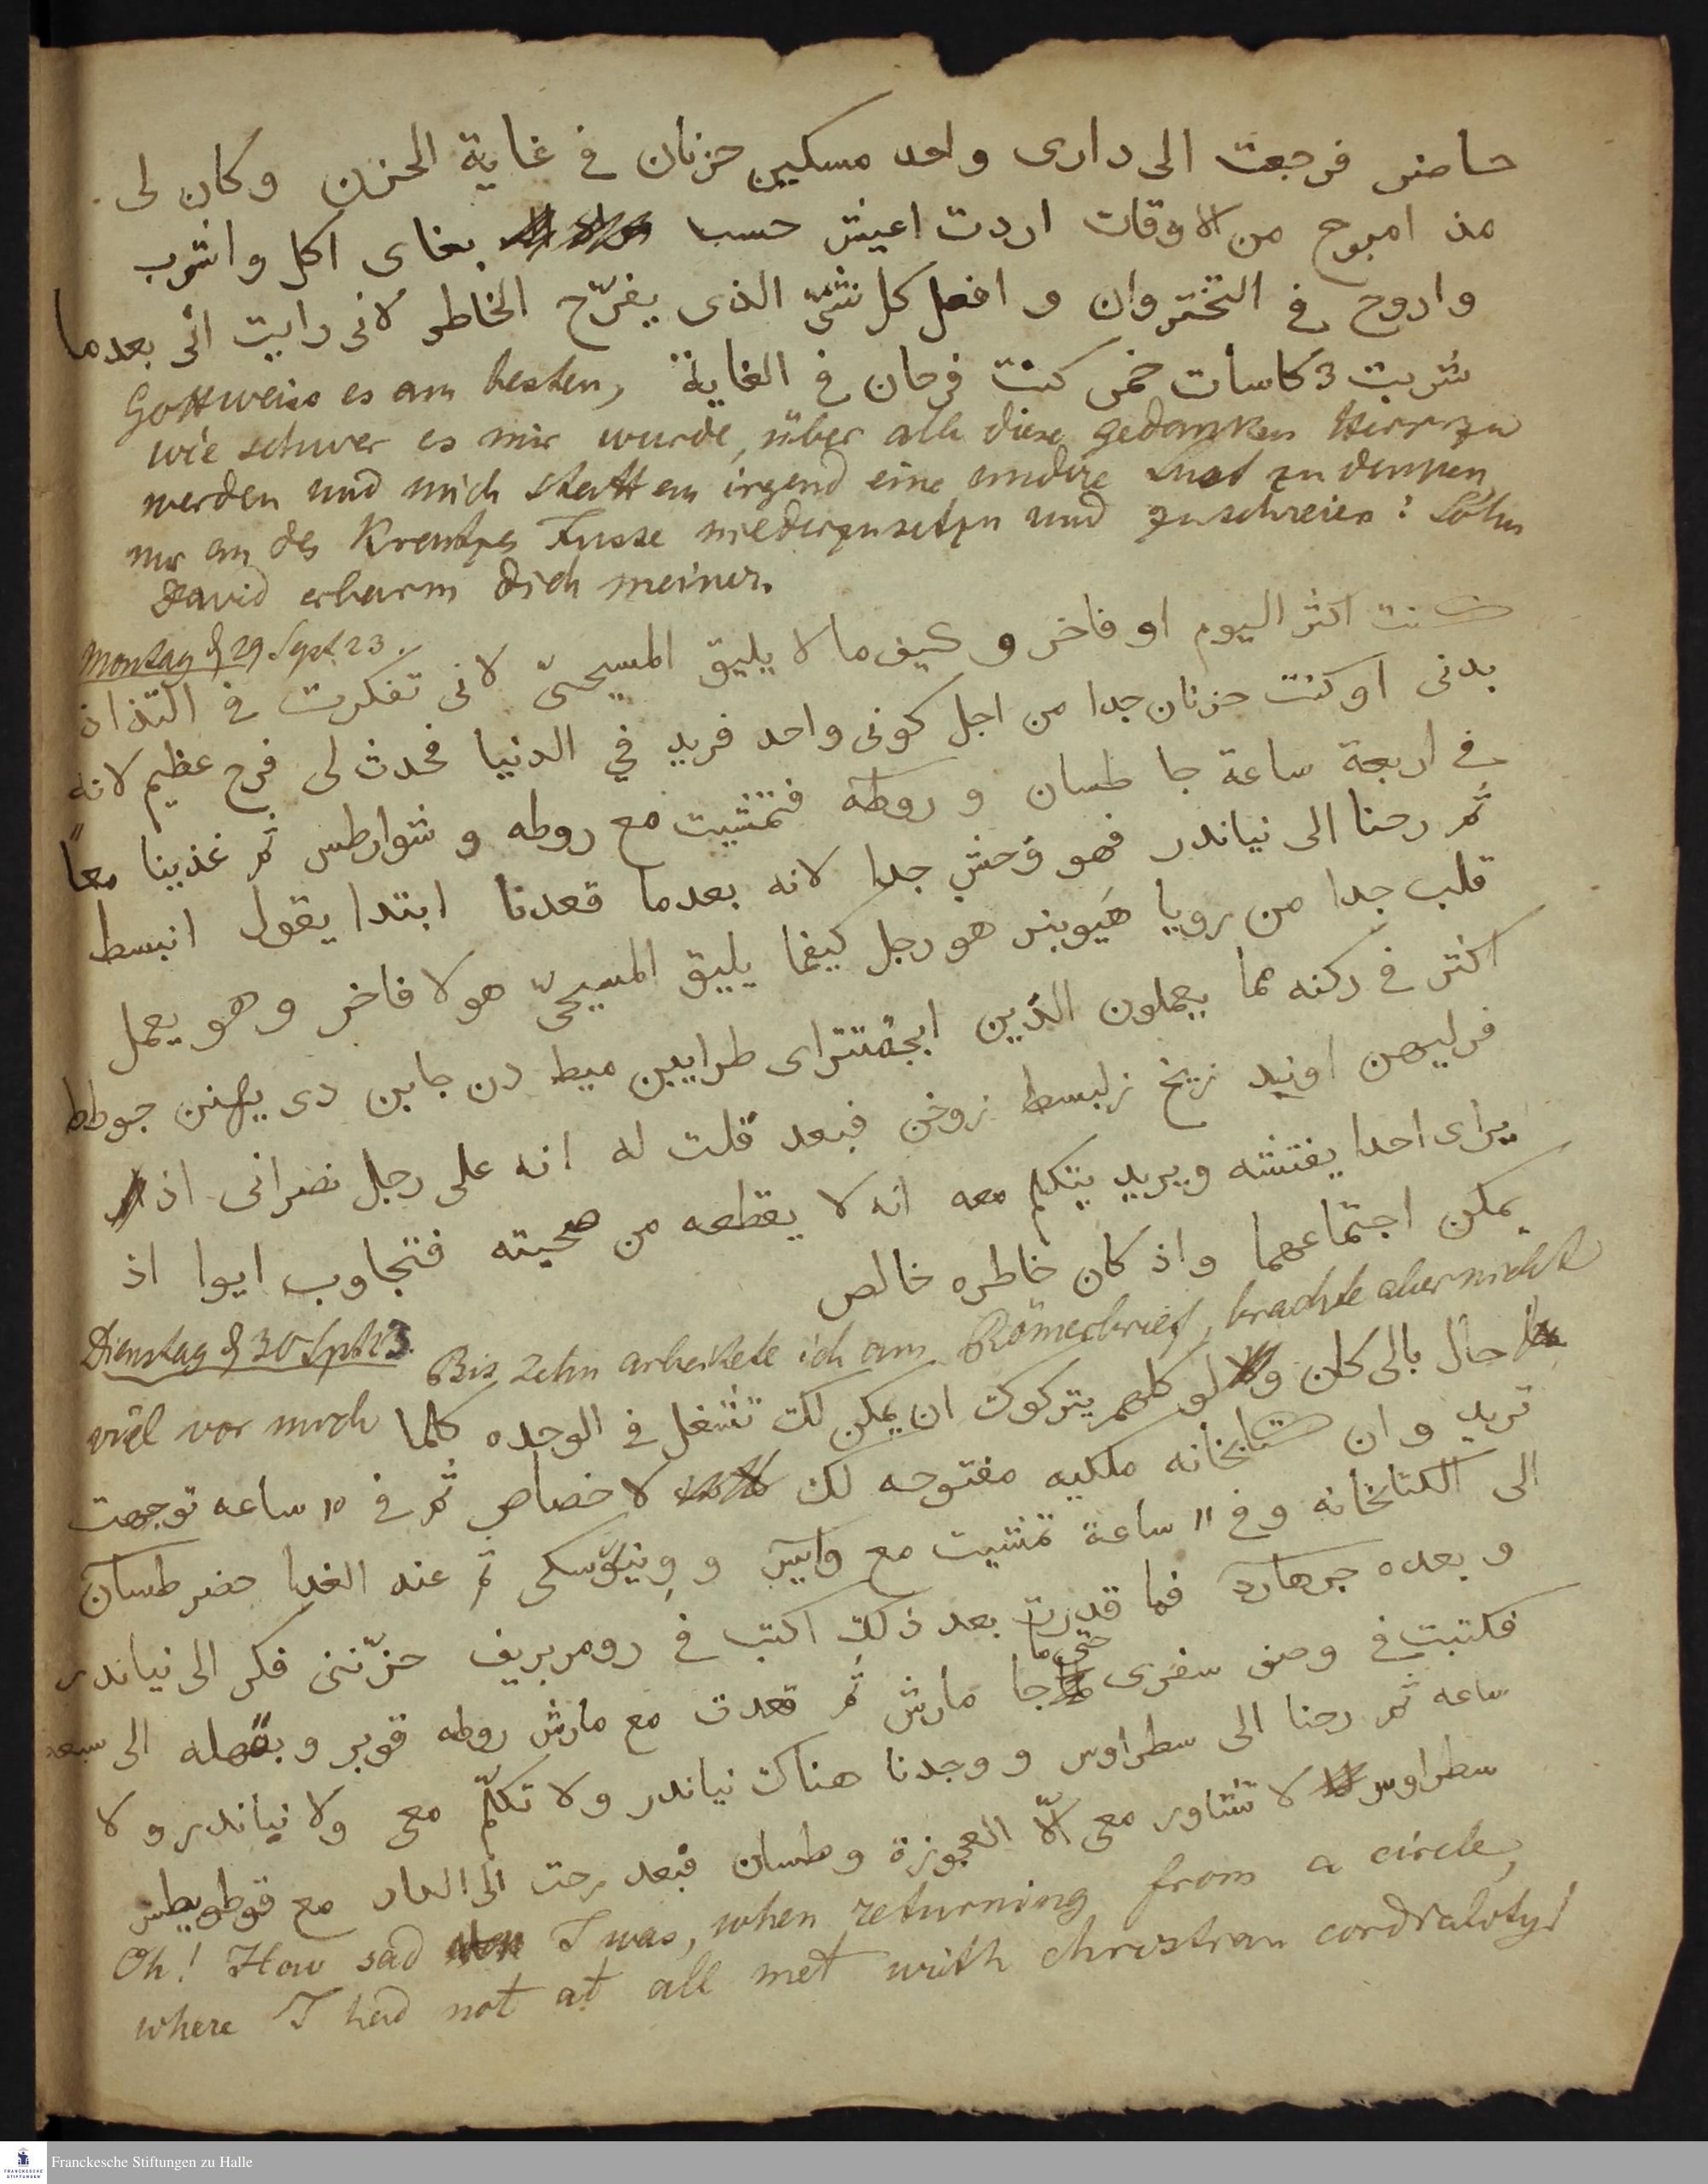 حاضر فرجعت الى دارى واحد مسكين حزنان فى غاية الحزن وكان لى
من الاوقات اردت اعيش حسب بغاى اكل واشرب
واروح فى التختروان و افعل كل شىّ الذى يفرّح الخاطر لانى رايت انى بعدما
شربت 3 كاسات خمر كنت فرحان فى الغاية Gott weiss es am besten,
wie schwer es mir wurde, über alle diese gedanken Herr zu
werden und mich statt an irgend eine andere Lust zu denken,
nur an des Kreutzes Fusse niederzusetzen und zu schreien: Sohn
David erbarm dich meiner.
Montag d 29 Sept 23. كنت اكثر اليوم او فاخر و كيف ما لا يليق المسيحىّ لانى تفكرت فى التذاذ
بدنى او كنت حزنان جدا من اجل كونى واحد فريد في الدنيا فحدث لى فرح عظيم لانه
فى اربعة ساعة جا طسان و روطه فتمشيت مع روطه و شوارطس ثم غدينا معاً
ثم رحنا الى نياندر فهو وحش جدا لانه بعدما قعدنا ابتدا يقول انبسط
قلب جدا من رويا هيوبنر هو رجل كيفما يليق المسيحىّ هو لا فاخر وهو يعمل
اكثر فى ركنه مما يعملون الذين ميط دن جابن دى يهنن جوطط
فرليهن اوند زيخ زلبسط زوخن فبعد قلت له انه على رجل نصرانى اذ
يراى احدا يفتشه ويريد يتكلم معه انه لا يقطعه من صحبته فتجاوب ايوا اذ
يمكن اجتماعهما واذ كان خاطره خالص
Dienstag d 30 Sept 23. Bis zehn arbeitete ich am Römerbrief, brachte aber nicht
viel vor mich حال بالى كان و لو كلهم يتركوك ان يمكن لك تشغل فى الوحده كلما
تريد و ان كتابخانه ملكيه مفتوحه لك لا خصاص ثم فى ١٠ ساعه توجهت
الى الكتابخانه وفى ١١ ساعة تمشيت مع وايس و وينيوسكى ثم عند الغدا حضر طسان
و بعده جرهارد فما قدرت بعد ذلك اكتب فى رومربريف حزّننى فكر الى نياندر
فكتبت فى وصف سفرى حتى ما جا مارش ثم قعدت مع مارش روطه قوبر و الى سبعه
ساعه ثم رحنا الى سطراوس و وجدنا هناك نياندر ولا تكلّم معى ولا نياندر و لا
سطراوس لا تشاور معى الّا العجوزة و طسان فبعد رحت الى الدار مع قوطويطس
Oh! How sad I was, when returning from a circle,
where I had not at all met with christian cordiality!
Franckesche Stiftungen zu Halle